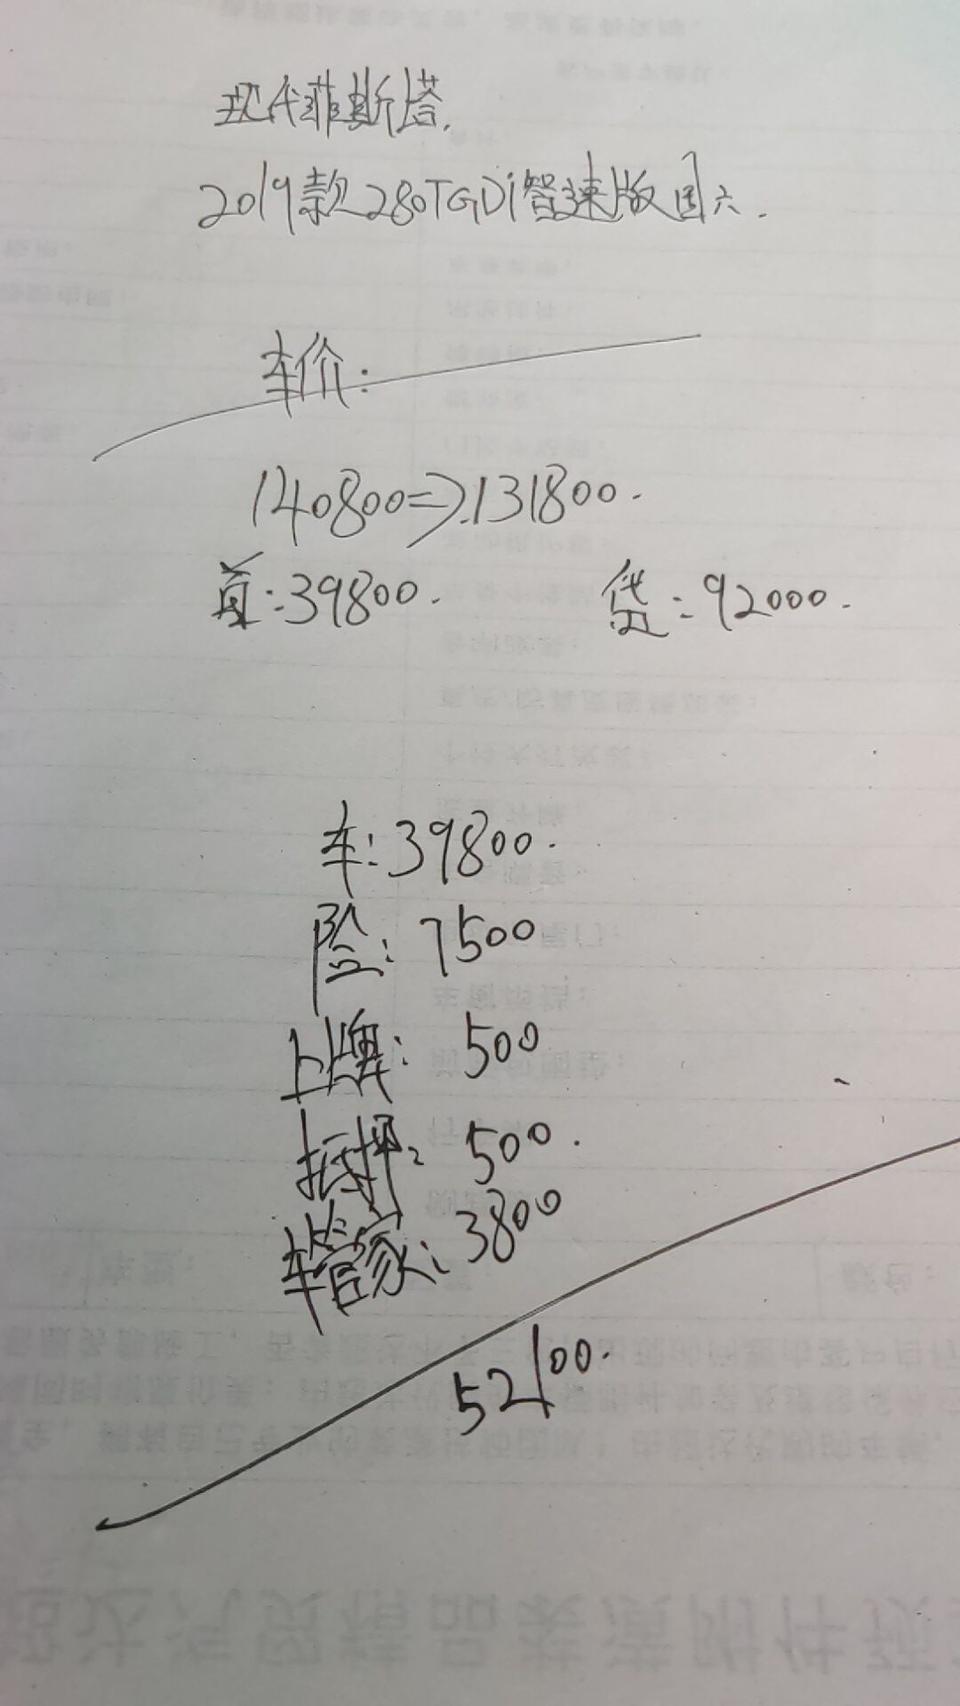 现代菲斯塔.
2019款280TGDi智速版国六.
车价:
140800=>131800.
首:39800. 贷:92000.
车:39800.
险:7500
上牌:500
抵押:500.
车管家:3800
52100.